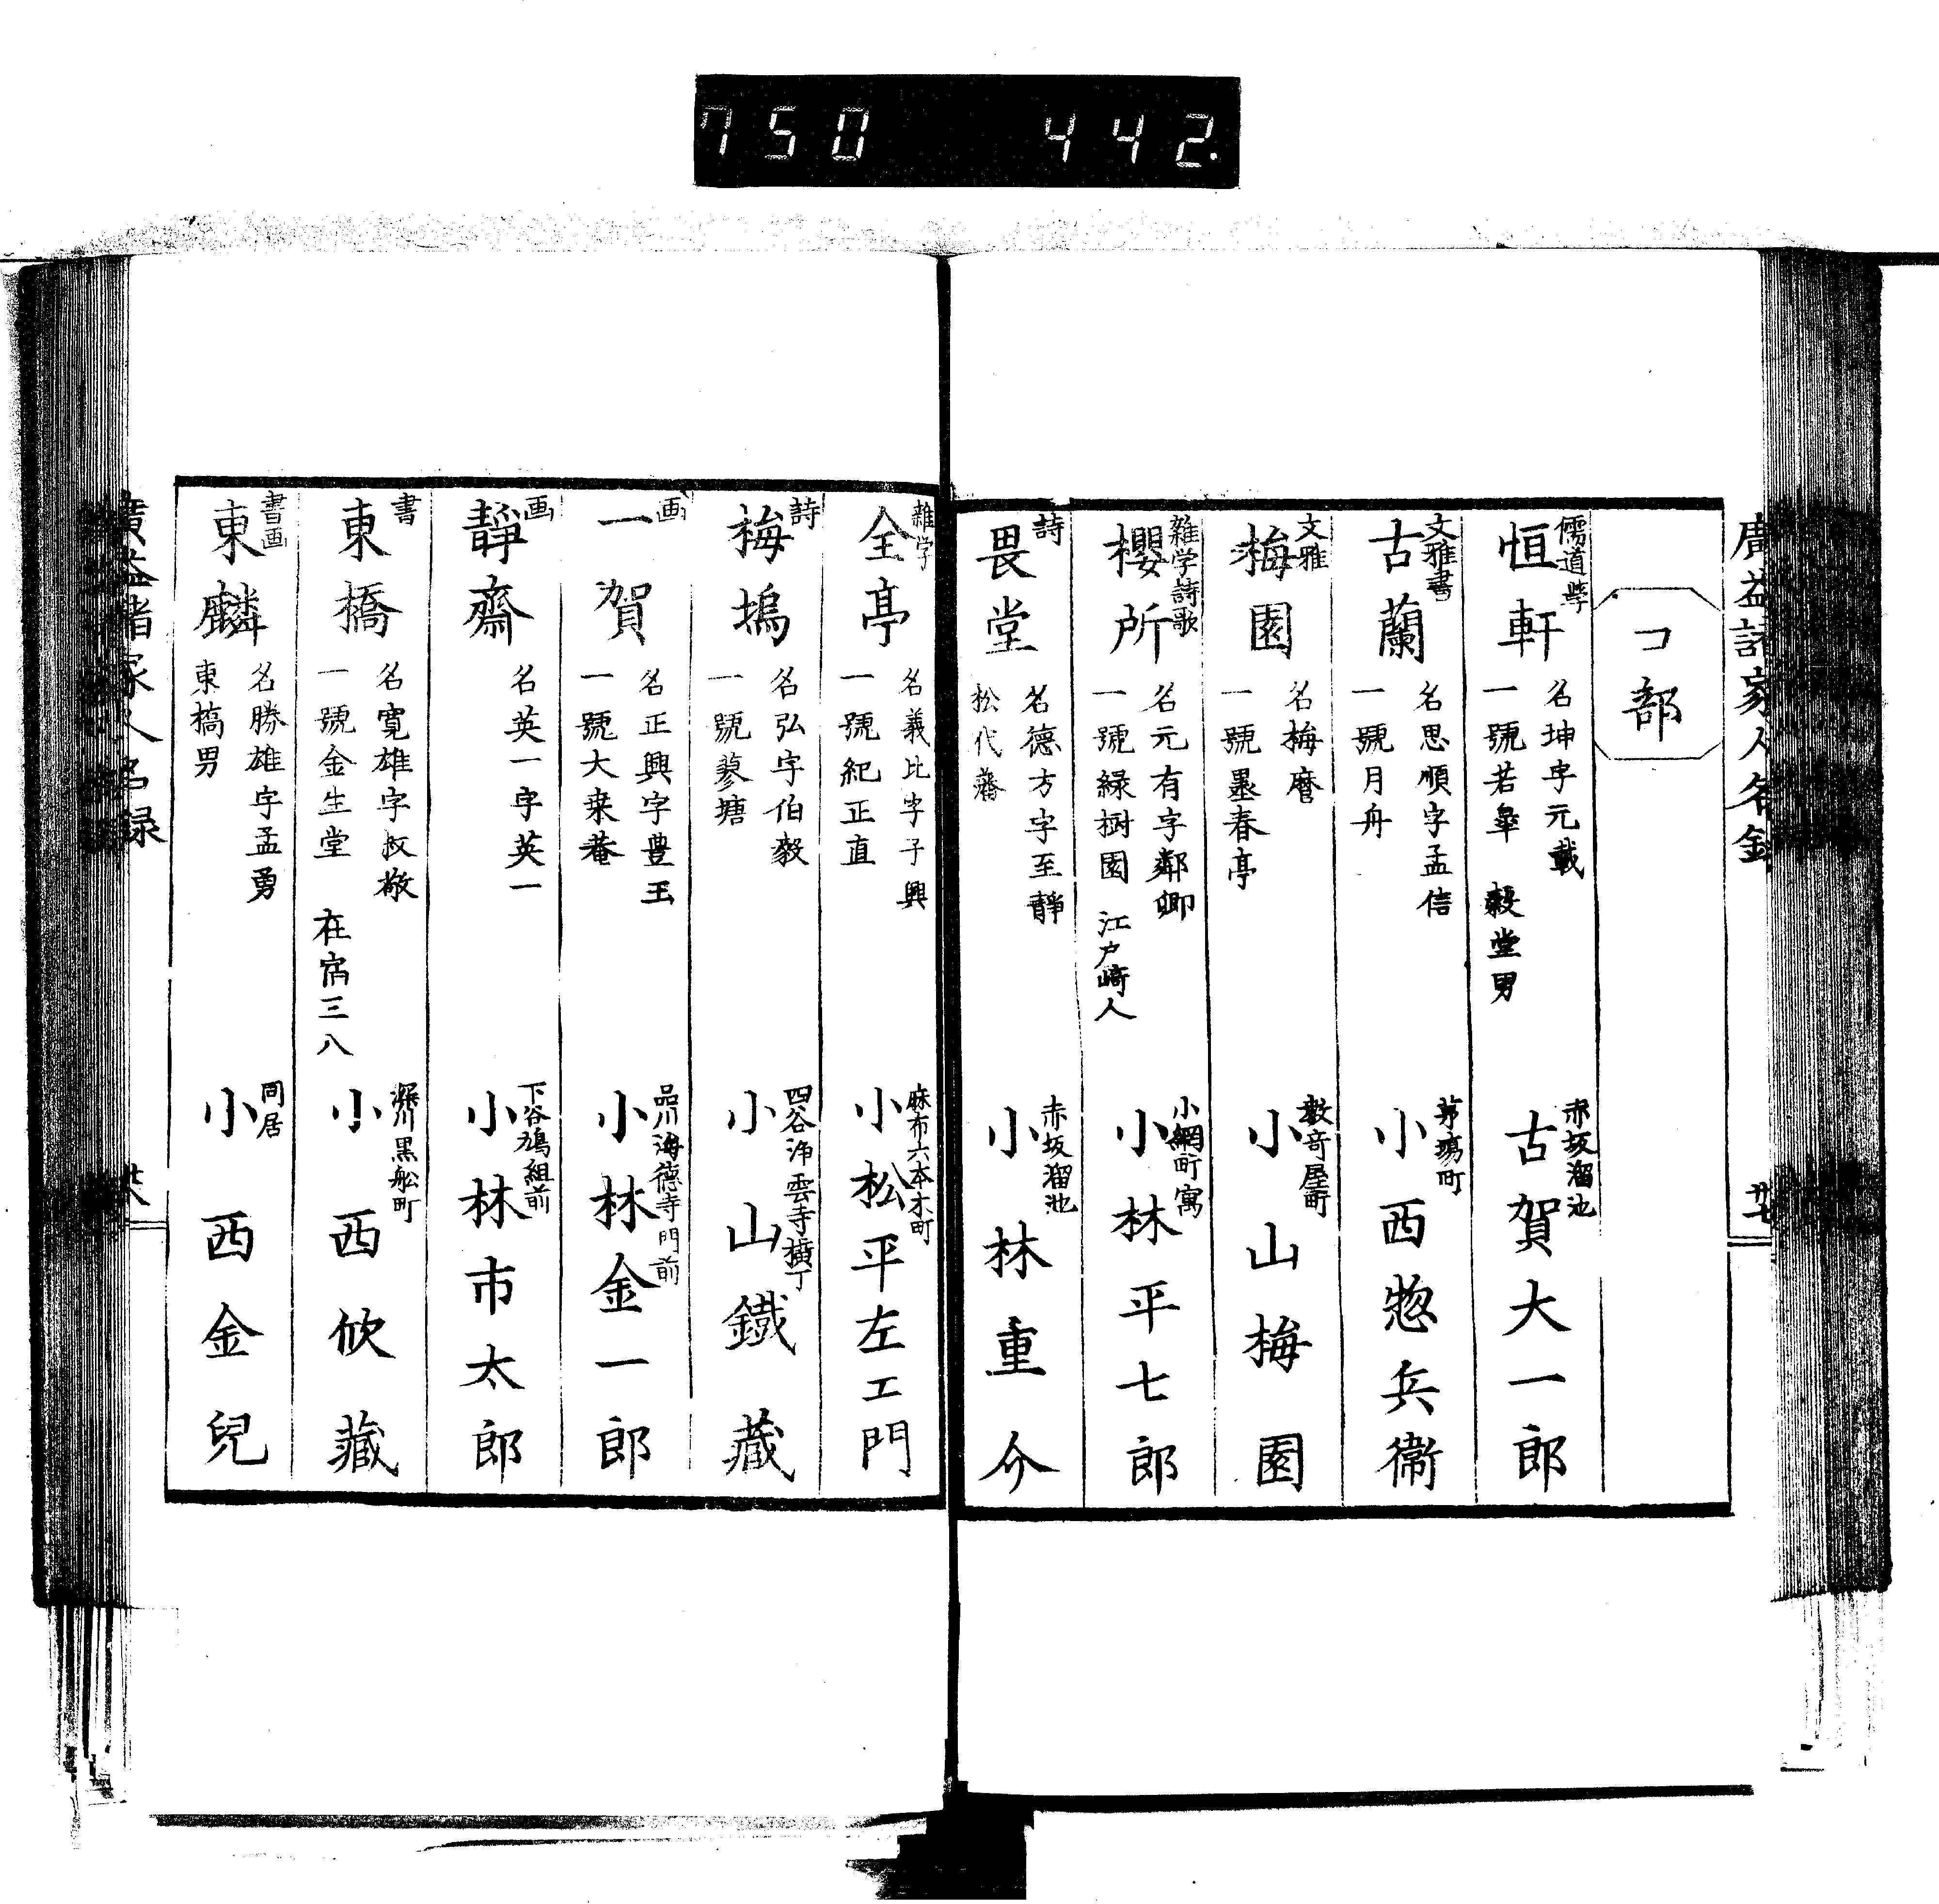 750 442.
廣益諸家人名録
廿七
コ部
儒道学
恒軒
名坤字元載
一號若皐 穀堂男
赤坂溜池
古賀大一郎
文雅書
古蘭
名思順字孟信
一號月舟
茅場町
小西惣兵衞
文雅
梅園
名梅麿
一號墨春亭
数寄屋町
小山梅園
雑学詩歌
櫻所
名元有字鄰卿
一號緑樹園 江戸崎人
小網町寓
小林平七郎
詩
畏堂
名德方字至靜
松代藩
赤坂溜池
小林重介
雑学
全亭
名義比字子興
一號紀正直
麻布六本木町
小松平左工門
詩
梅塢
名弘字伯毅
一號蓼塘
四谷浄雲寺横丁
小山鐵藏
画
一賀
名正興字豊玉
一號大来菴
品川海德寺門前
小林金一郎
画
靜齋
名英一字英一
下谷鳩組前
小林市太郎
書
東橋
名寛雄字叔敬
一號金生堂 在宿三八
深川黒舩町
小西攽藏
書画
東麟
名勝雄字孟勇
東橋男
同居
小西金兒
廣益諸家人名録
廿八